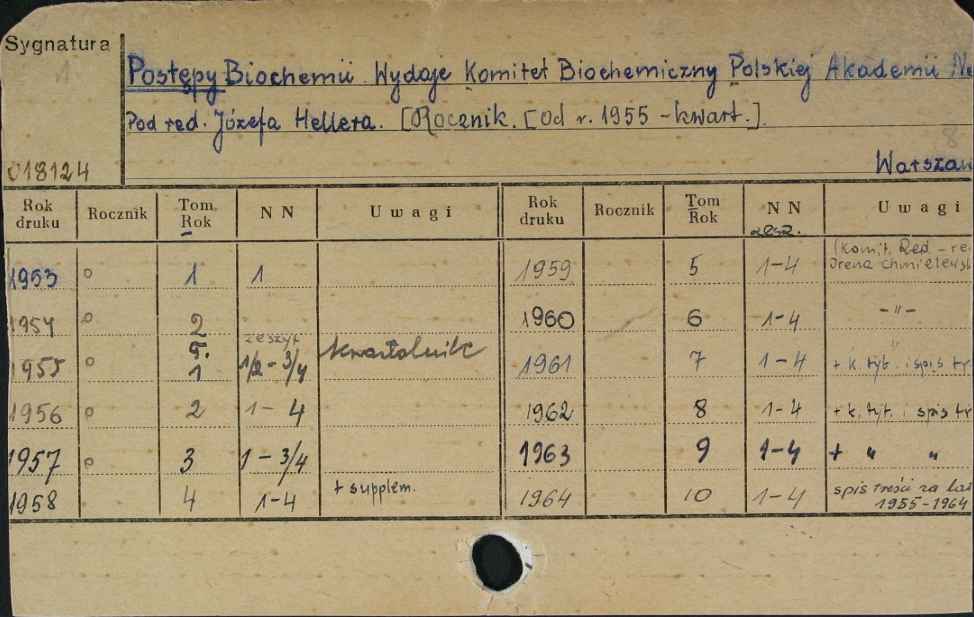 Sygnatura
Postępy Biochemii Wydaje Komitet Biochemiczny Polskiej Akademii
Pod red. Józefa Hellera. [Rocznik. [Od r. 1955 - kwart.].
018124
Warszaw
Rok druku Rocznik Tom. Rok NN Uwagi Rok druku Rocznik Tom Rok NN Uwagi
zesz.
1953 o 1 1 1959 5 1-4 (Komit. Red. - re
Irena Chmielews
1954 o 2 1960 6 1-4 -"-
zeszyt
1955 o 5. 1 1/2 - 3/4 kwartalnik 1961 7 1-4 + k. tyt. i spis tr
1956 o 2 1- 4 1962 8 1-4 + k. tyt. i spis tr
1957 o 3 1 - 3/4 1963 9 1-4 + " "
1958 4 1-4 + supplem. 1964 10 1-4 spis treści za lat
1955-1964